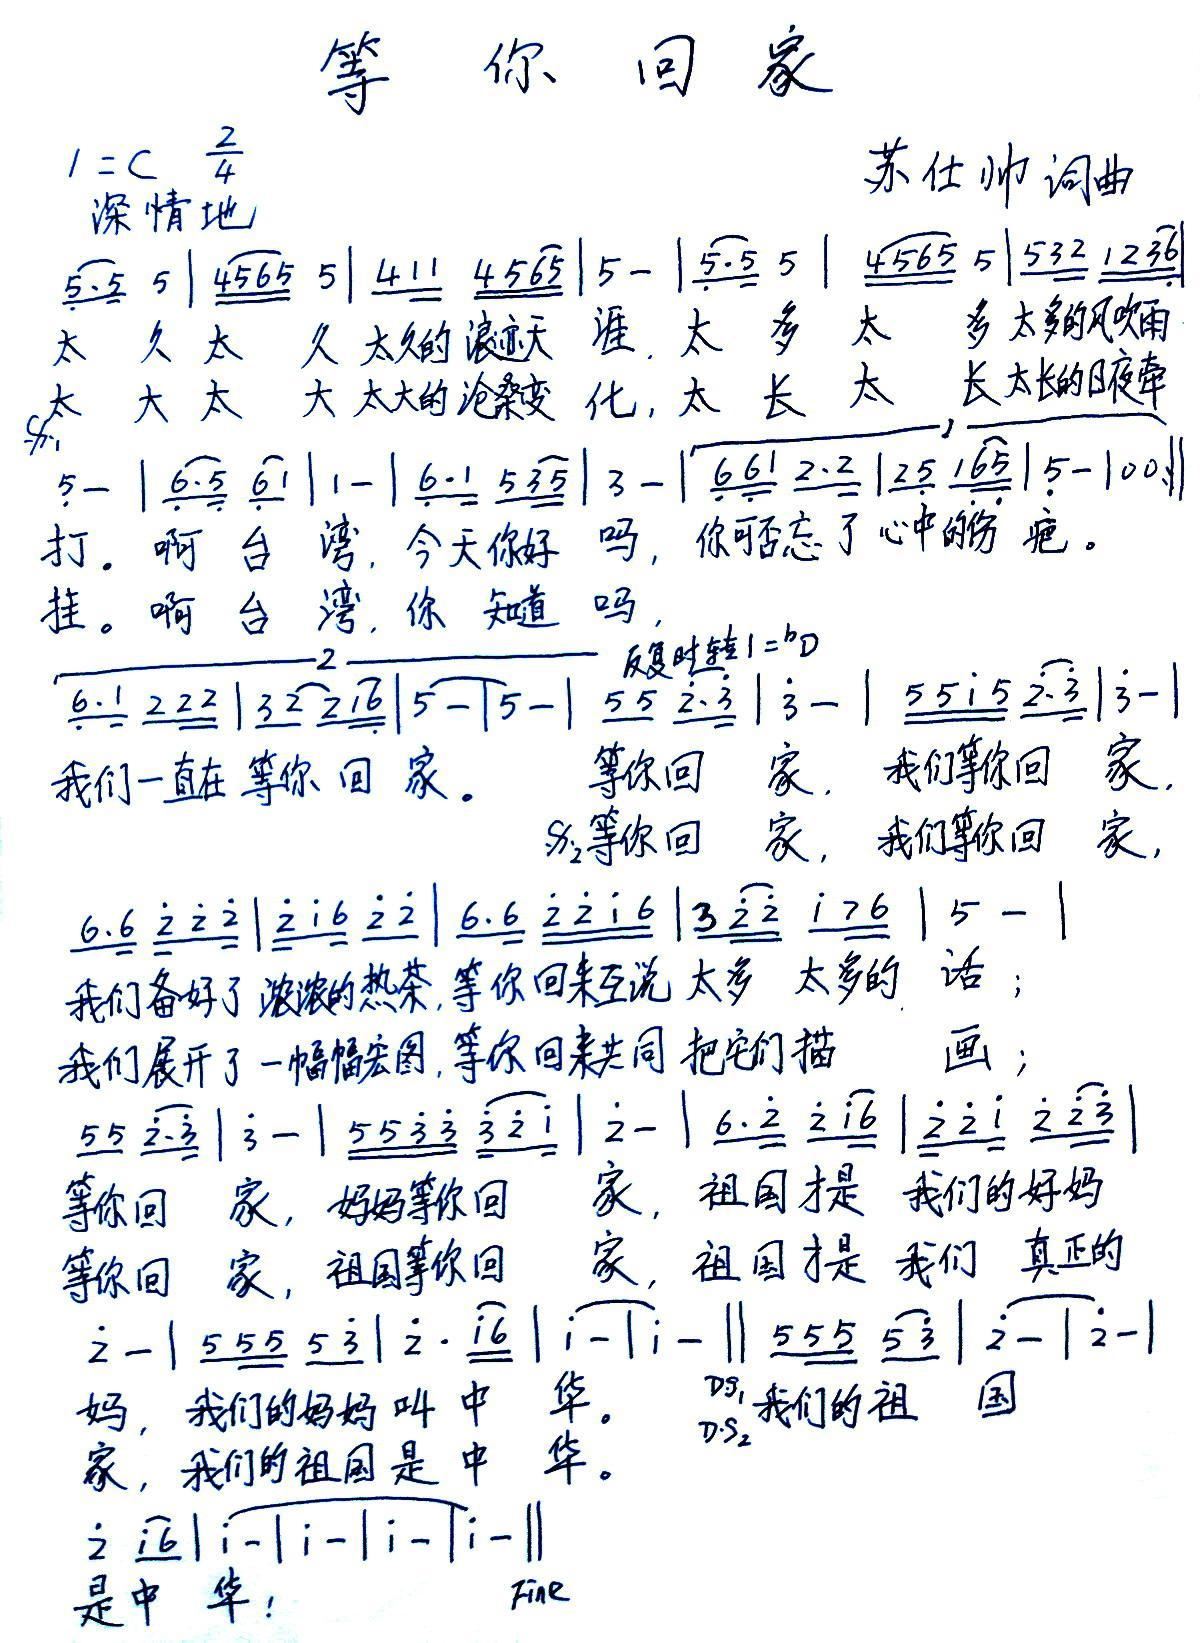 等 你 回 家
1=C 2/4
苏仕帅 词曲
深情地
5·5 5 | 4565 5 | 411 4565 | 5 - | 5·5 5 | 4565 5 | 532 1236 |
太 久 太 久 太久的浪迹天 涯，太 多 太 多 太多的风吹雨
太 大 太 大 太大的沧桑变 化，太 长 太 长 太长的日夜牵
5 - | 6·5 61 | 1 - | 6·1 535 | 3 - | 661 2·2 | 25 165 | 5 - | 00 :||
打。啊 台 湾，今天你好 吗，你可否忘了心中的伤 疤。
挂。啊 台 湾，你 知道 吗，
2 反复时转1=bD
6·1 222 | 32 216 | 5 - | 5 - | 55 2·3 | 3 - | 5515 2·3 | 3 - |
我们一直在等你 回 家。 等你回 家，我们等你回 家，
等你回 家，我们等你回 家，
6·6 222 | 216 22 | 6·6 2216 | 322 176 | 5 - |
我们备好了 浓浓的热茶，等你回来互说 太多 太多的 话；
我们展开了一幅幅宏图，等你回来共同 把它们描 画；
55 2·3 | 3 - | 5533 321 | 2 - | 6·2 216 | 221 223 |
等你回 家，妈妈等你回 家，祖国才是 我们的好妈
等你回 家，祖国等你回 家，祖国才是 我们 真正的
2 - | 555 53 | 2· 16 | 1 - | 1 - || 555 53 | 2 - | 2 - |
妈，我们的妈妈 叫 中 华。 D.S1 我们的祖 国
家，我们的祖国是 中 华。 D.S2
2 16 | 1 - | 1 - | 1 - | 1 - ||
是中 华！ Fine